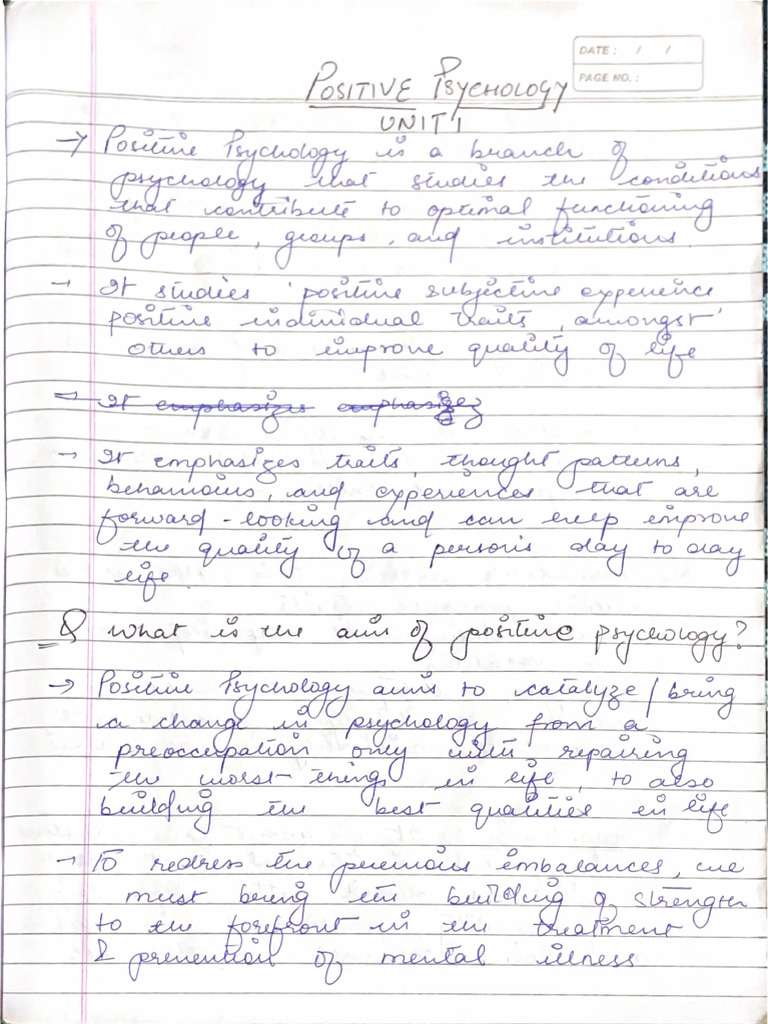 DATE: / /
PAGE NO.:
POSITIVE PSYCHOLOGY
UNIT 1
→ Positive Psychology is a branch of
psychology that studies the conditions
that contribute to optimal functioning
of people, groups, and institutions
→ It studies 'positive subjective experience
positive individual traits, amongst'
others to improve quality of life
→ It emphasizes emphasizez
→ It emphasizes traits, thought patterns,
behaviours, and experiences that are
forward-looking and can help improve
the quality of a person's day to day
life.
Q What is the aim of positive psychology?
→ Positive Psychology aims to catalyze/bring
a change in psychology from a
preoccupation only with repairing
the worst things in life, to also
building the best qualities in life
→ To redress the previous imbalances, we
must bring the building of strength
to the forefront in the treatment
& prevention of mental illness